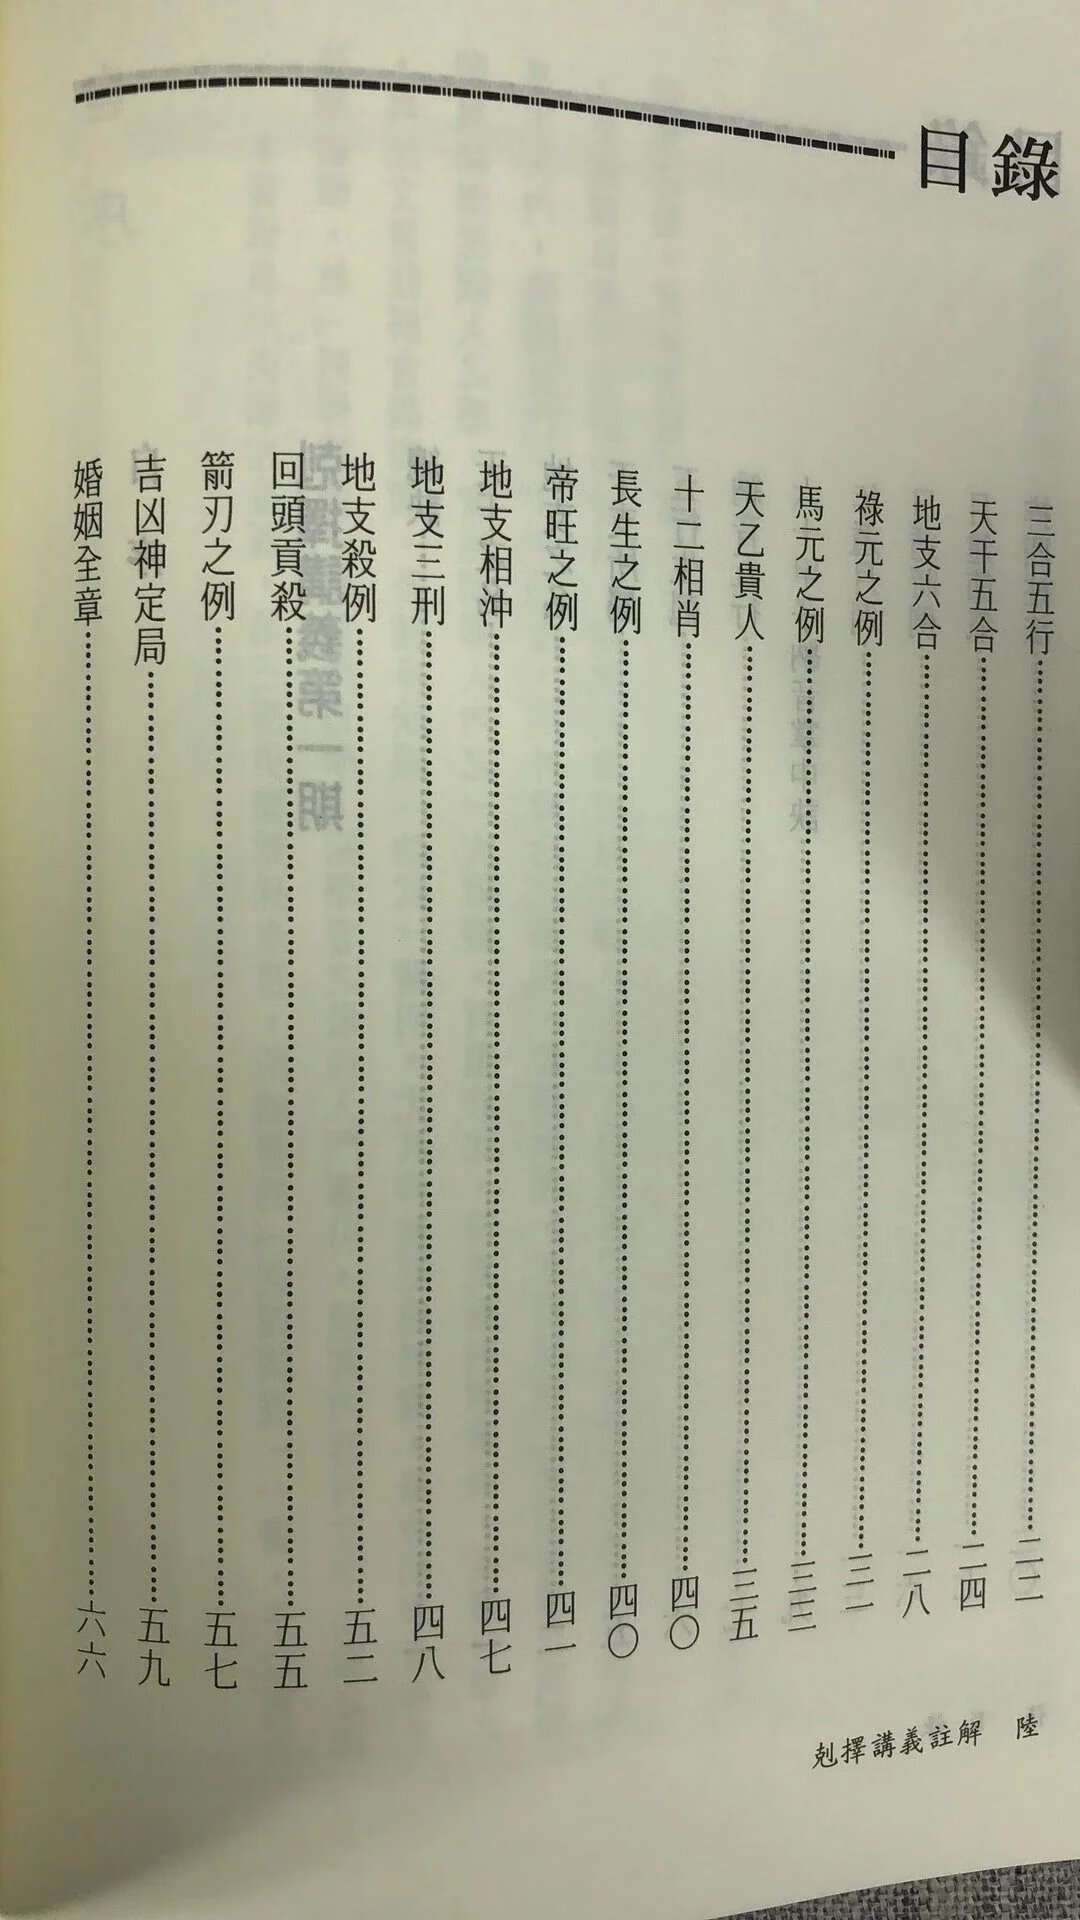 目錄
三合五行……二二
天干五合……二四
地支六合……二八
祿元之例……三一
馬元之例……三三
天乙貴人……三五
十二相肖……四〇
長生之例……四〇
帝旺之例……四一
地支相沖……四七
地支三刑……四八
地支殺例……五二
回頭貢殺……五五
箭刃之例……五七
吉凶神定局……五九
婚姻全章……六六
剋擇講義註解 陸